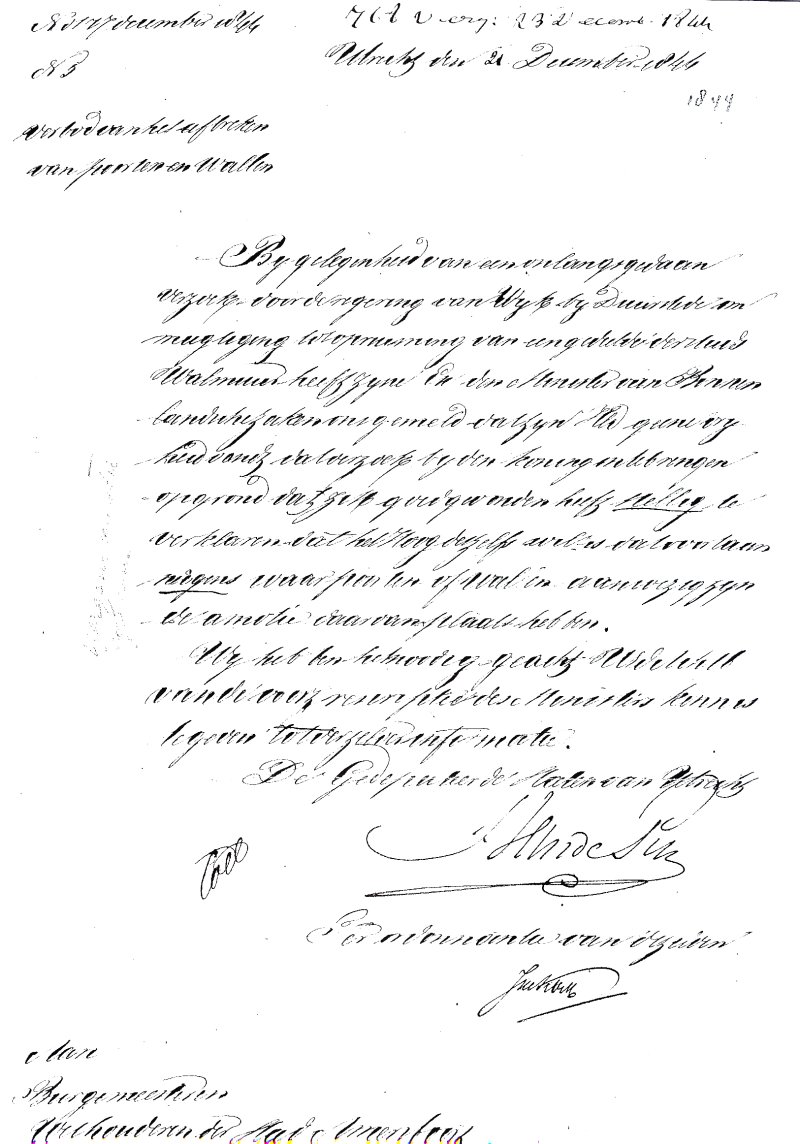 No 3 17 december 1844
No 3
761 verg: 23 Decemb. 1844
Utrecht den 21 December 1844
1844
verbod van het afbreken
van poorten en Wallen
By gelegenheid van een onlangs gedaan
verzoek door de regering van Wyk by Duurstede om
magtiging tot opruiming van een gedeelte der stads
Walmuur heeft zyne Ex den Minister van Binnen
landsche zaken ons gemeld dat zyn Hd geene vry
heid vondt dat verzoek by den Koning in te brengen
op grond dat Z. goedgevonden heeft stellig te
verklaren dat het Hoog deszelfs wil is dat voortaan
nergens waar poorten of Wallen aanwezig zyn
de amotie daarvan plaats hebben.
Wy hebben het noodig geacht UEdelAchtb
van die voorz rescriptie des Ministers kennis
te geven tot derzelver informatie.
De Gedeputeerde Staten van Utrecht
Ter ordonnantie van dezelven
Aan
Burgemeester en
Wethouderen der Stad Amersfoort